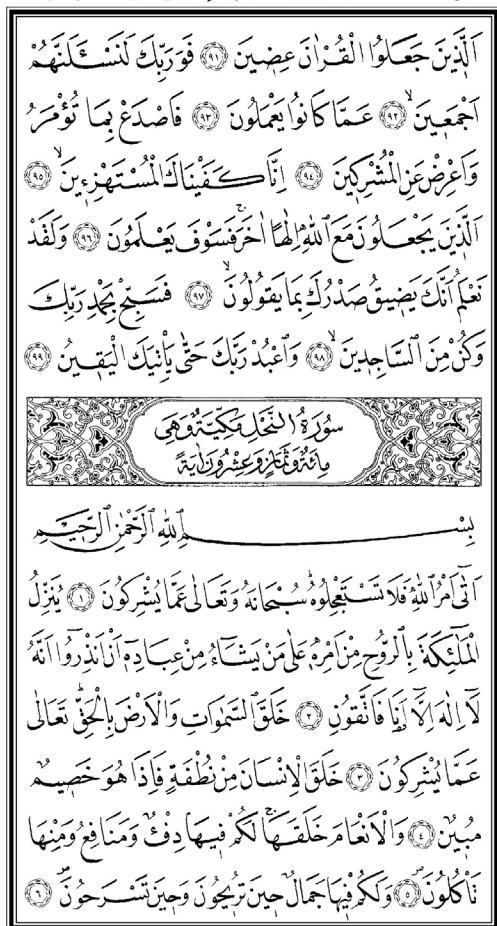 اَلَّذ۪ينَ جَعَلُوا الْقُرْاٰنَ عِض۪ينَ ﴿٩١﴾ فَوَرَبِّكَ لَنَسْـَٔلَنَّهُمْ
اَجْمَع۪ينَۙ ﴿٩٢﴾ عَمَّا كَانُوا يَعْمَلُونَ ﴿٩٣﴾ فَاصْدَعْ بِمَا تُؤْمَرُ
وَاَعْرِضْ عَنِ الْمُشْرِك۪ينَ ﴿٩٤﴾ اِنَّا كَفَيْنَاكَ الْمُسْتَهْزِء۪ينَۙ ﴿٩٥﴾
اَلَّذ۪ينَ يَجْعَلُونَ مَعَ اللّٰهِ اِلٰهًا اٰخَرَۚ فَسَوْفَ يَعْلَمُونَ ﴿٩٦﴾ وَلَقَدْ
نَعْلَمُ اَنَّكَ يَض۪يقُ صَدْرُكَ بِمَا يَقُولُونَۙ ﴿٩٧﴾ فَسَبِّحْ بِحَمْدِ رَبِّكَ
وَكُنْ مِنَ السَّاجِد۪ينَۙ ﴿٩٨﴾ وَاعْبُدْ رَبَّكَ حَتّٰى يَأْتِيَكَ الْيَق۪ينُ ﴿٩٩﴾
سُورَةُ النَّحْلِ مَكِّيَّةٌ وَهِيَ
مِائَةٌ وَثَمَانٍ وَعِشْرُونَ اٰيَةً
بِسْمِ اللّٰهِ الرَّحْمٰنِ الرَّح۪يمِ
اَتٰٓى اَمْرُ اللّٰهِ فَلَا تَسْتَعْجِلُوهُۜ سُبْحَانَهُ وَتَعَالٰى عَمَّا يُشْرِكُونَ ﴿١﴾ يُنَزِّلُ
الْمَلٰٓئِكَةَ بِالرُّوحِ مِنْ اَمْرِه۪ عَلٰى مَنْ يَشَٓاءُ مِنْ عِبَادِه۪ٓ اَنْ اَنْذِرُٓوا اَنَّهُ
لَٓا اِلٰهَ اِلَّٓا اَنَا۬ فَاتَّقُونِ ﴿٢﴾ خَلَقَ السَّمٰوَاتِ وَالْاَرْضَ بِالْحَقِّۜ تَعَالٰى
عَمَّا يُشْرِكُونَ ﴿٣﴾ خَلَقَ الْاِنْسَانَ مِنْ نُطْفَةٍ فَاِذَا هُوَ خَص۪يمٌ
مُب۪ينٌ ﴿٤﴾ وَالْاَنْعَامَ خَلَقَهَاۚ لَكُمْ ف۪يهَا دِفْءٌ وَمَنَافِعُ وَمِنْهَا
تَأْكُلُونَۖ ﴿٥﴾ وَلَكُمْ ف۪يهَا جَمَالٌ ح۪ينَ تُر۪يحُونَ وَح۪ينَ تَسْرَحُونَۖ ﴿٦﴾